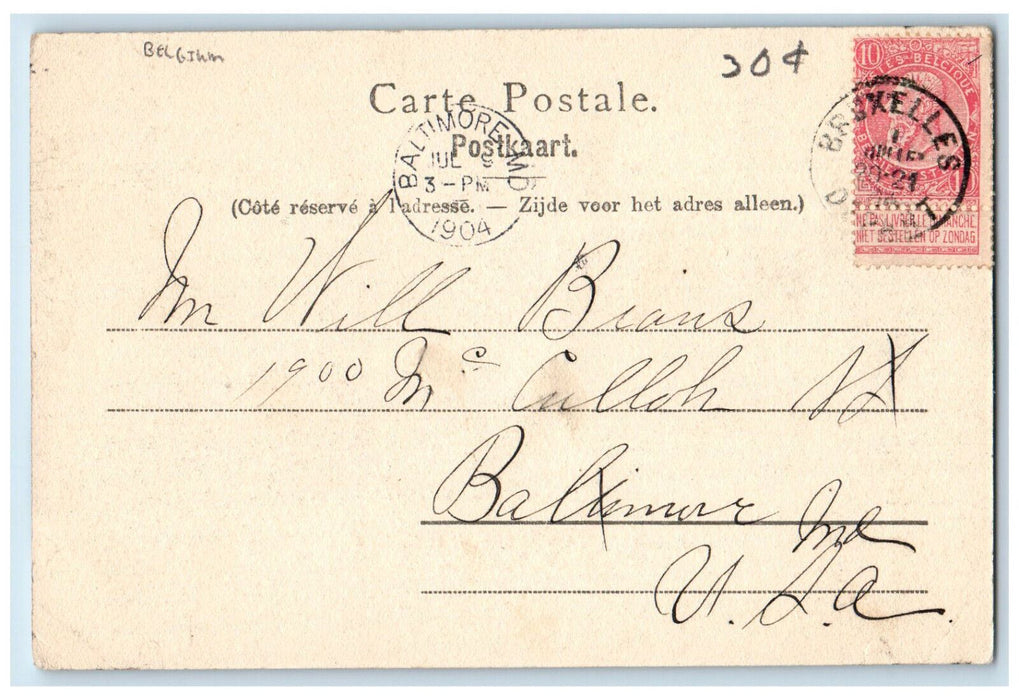 BELGIUM
30¢
10
BELGIQUE
Carte Postale.
Postkaart.
BALTIMORE, MD
JUL 9
3-PM
1904
BRUXELLES
1
20-21
DÉPART
(Côté réservé à l'adresse. — Zijde voor het adres alleen.)
NE PAS LIVRER LE DIMANCHE
NIET BESTELLEN OP ZONDAG
Mr Will
1900 Mc Culloh St
Baltimore Md
U.S.a.